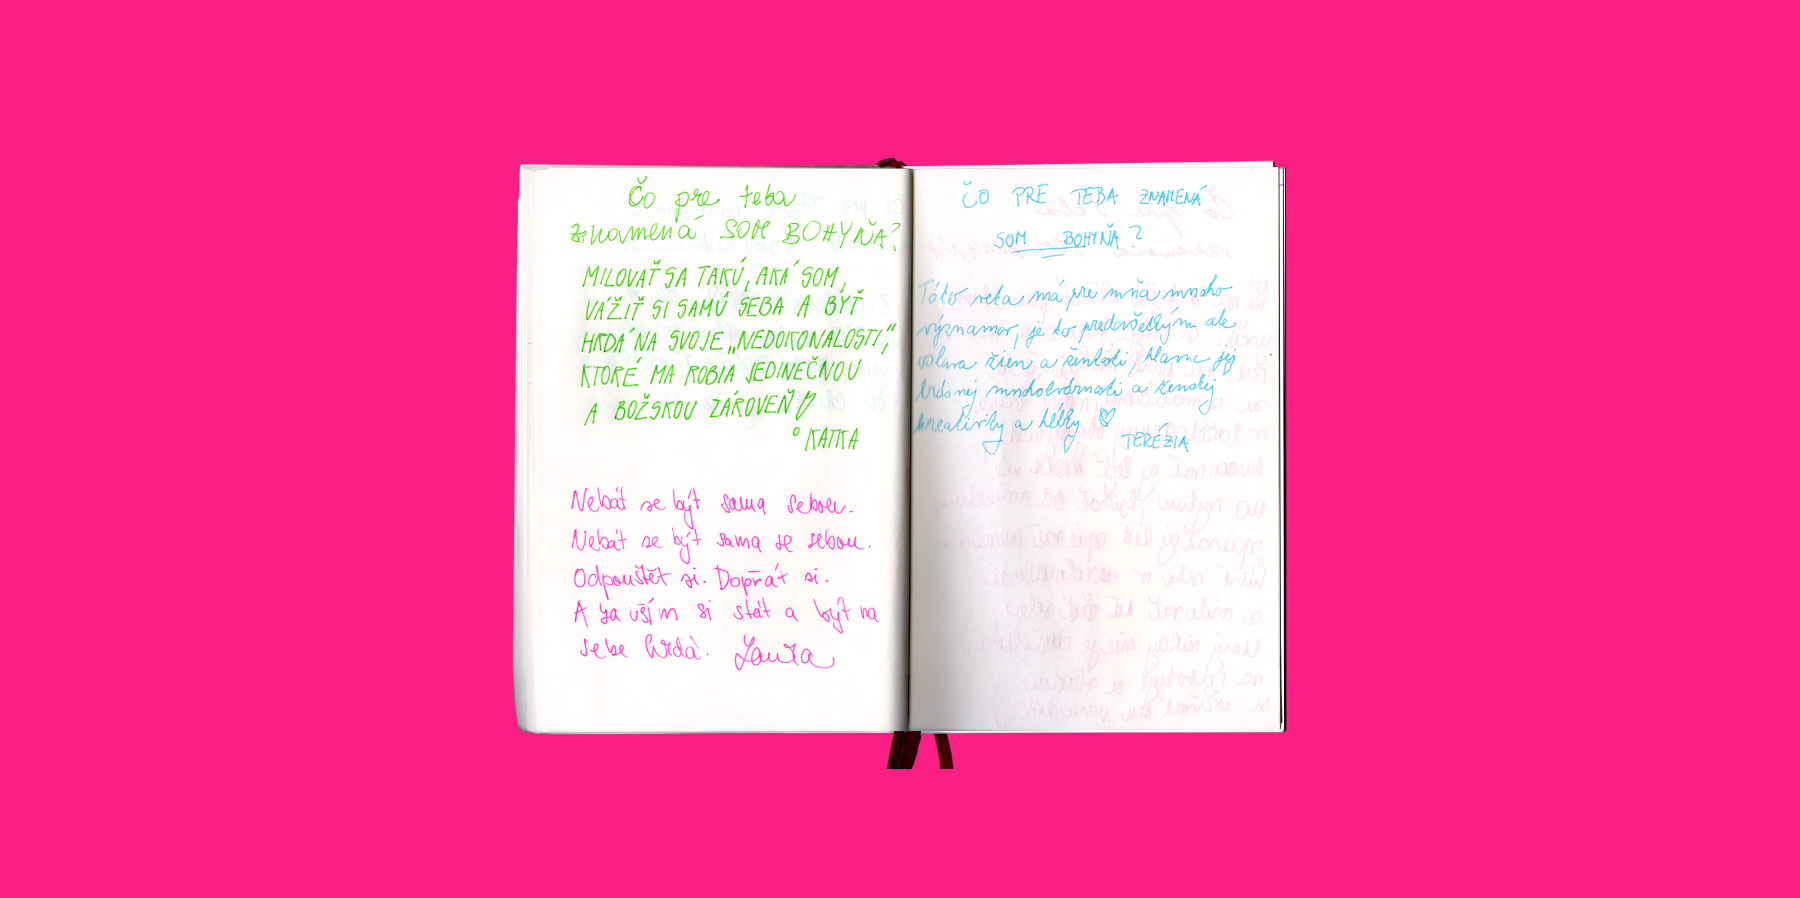 Čo pre teba
znamená SOM BOHYŇA?
MILOVAŤ SA TAKÚ, AKÁ SOM,
VÁŽIŤ SI SAMÚ SEBA A BYŤ
HRDÁ NA SVOJE „NEDOKONALOSTI,“
KTORÉ MA ROBIA JEDINEČNOU
A BOŽSKOU ZÁROVEŇ ♡
° KATKA
Nebát se být sama sebou.
Nebát se být sama se sebou.
Odpouštět si. Dopřát si.
A za vším si stát a být na
sebe hrdá. Laura
ČO PRE TEBA ZNAMENÁ
SOM BOHYŇA?
Táto veta má pre mňa mnoho
významov, je to predovšetkým ale
oslava žien a ženskosti, hlavne jej
krásnej mnohotvárnosti a ženskej
kreativity a hĺbky ♡
TERÉZIA